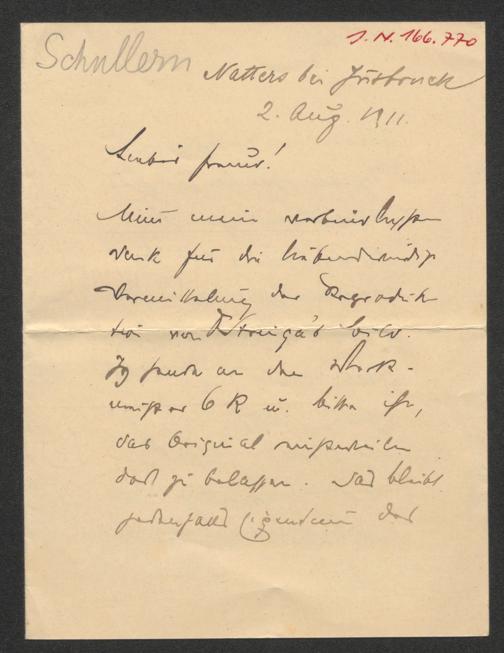 J. N. 166.770
Schullern
Natters bei Innsbruck
2. Aug. 1911.
Lieber Freund!
Nimm meinen verbindlichsten
Dank für die liebenswürdige
Vermittelung der Reproduk-
tion von Bild.
Ich sende an den
6 K u. bitte ihn,
das Original
dort zu belassen. Das bleibt
jedenfalls Eigentum der